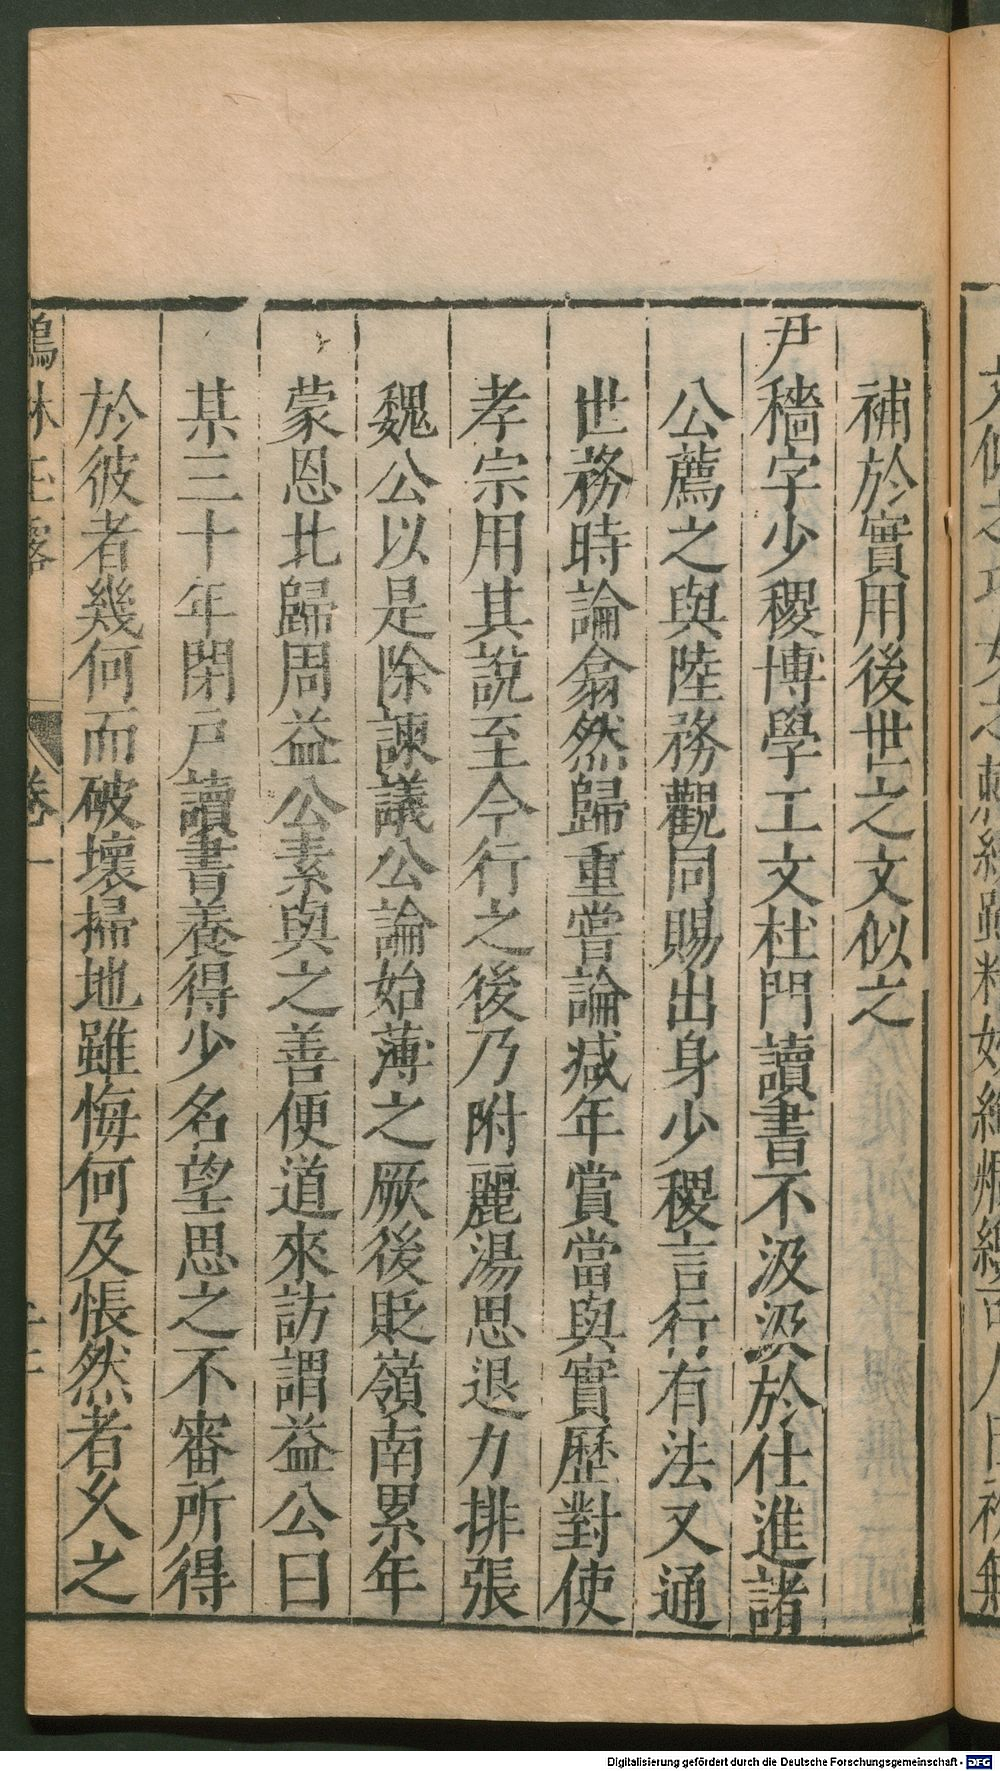 補於實用後世之文似之
尹穡字少稷博學工文杜門讀書不汲汲於仕進諸
公薦之與陸務觀同賜出身少稷言行有法又通
世務時論翕然歸重嘗論減年賞當與實歷對使
孝宗用其說至今行之後乃附麗湯思退力排張
魏公以是除諫議公論始薄之厥後貶嶺南累年
蒙恩北歸周益公素與之善便道來訪謂益公曰
某三十年閉戸讀書養得少名望思之不審所得
於彼者幾何而破壞掃地雖悔何及悵然者乆之
林玉露 卷一
Digitalisierung gefördert durch die Deutsche Forschungsgemeinschaft - DFG